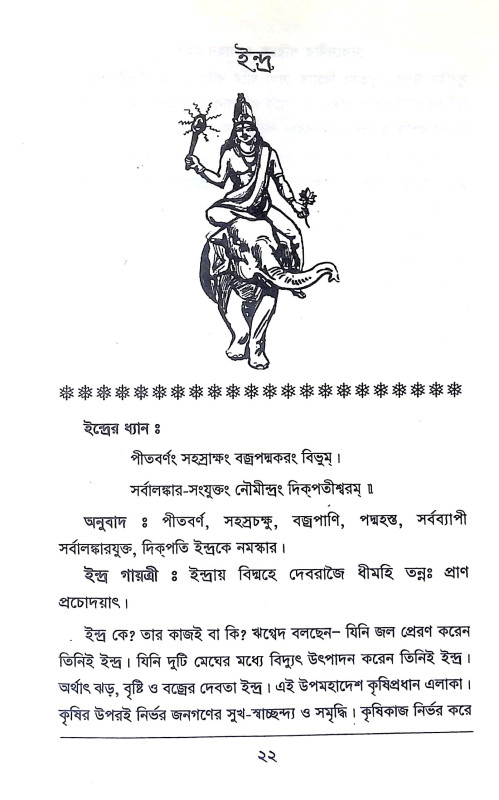 ইন্দ্র
ইন্দ্রের ধ্যান ঃ
পীতবর্ণং সহস্রাক্ষং বজ্রপদ্মকরং বিভুম্ ।
সর্বালঙ্কার-সংযুক্তং নৌমীন্দ্রং দিক্‌পতীশ্বরম্ ॥
অনুবাদ ঃ পীতবর্ণ, সহস্রচক্ষু, বজ্রপাণি, পদ্মহস্ত, সর্বব্যাপী
সর্বালঙ্কারযুক্ত, দিক্‌পতি ইন্দ্রকে নমস্কার ।
ইন্দ্র গায়ত্রী ঃ ইন্দ্রায় বিদ্মহে দেবরাজৈ ধীমহি তন্নঃ প্রাণ
প্রচোদয়াৎ ।
ইন্দ্র কে? তার কাজই বা কি? ঋগ্বেদ বলছেন– যিনি জল প্রেরণ করেন
তিনিই ইন্দ্র । যিনি দুটি মেঘের মধ্যে বিদ্যুৎ উৎপাদন করেন তিনিই ইন্দ্র ।
অর্থাৎ ঝড়, বৃষ্টি ও বজ্রের দেবতা ইন্দ্র । এই উপমহাদেশ কৃষিপ্রধান এলাকা ।
কৃষির উপরই নির্ভর জনগণের সুখ-স্বাচ্ছন্দ্য ও সমৃদ্ধি । কৃষিকাজ নির্ভর করে
২২